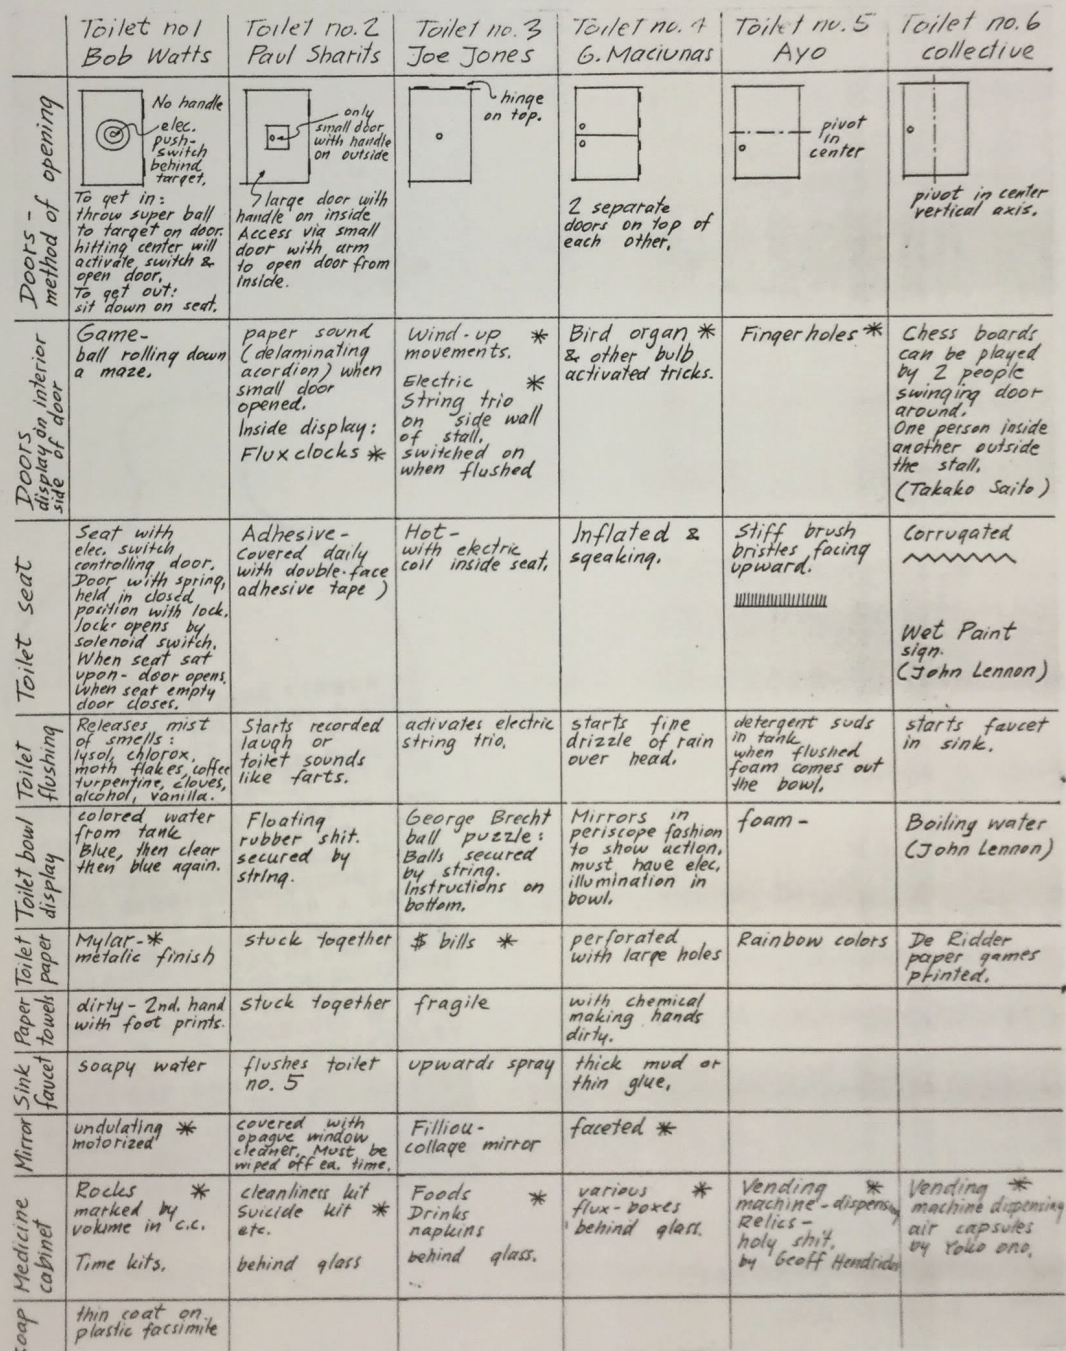 Toilet no1
Bob Watts
Toilet no.2
Paul Sharits
Toilet no.3
Joe Jones
Toilet no. 4
G. Maciunas
Toilet no. 5
Ayo
Toilet no.6
collective
Doors -
method of opening
No handle
elec.
push-
switch
behind
target.
To get in:
throw super ball
to target on door.
hitting center will
activate switch &
open door.
To get out:
sit down on seat.
only
small door
with handle
on outside
large door with
handle on inside
Access via small
door with arm
to open door from
inside.
hinge
on top.
2 separate
doors on top of
each other.
pivot
in
center
pivot in center
vertical axis.
Doors
display on interior
side of door
Game-
ball rolling down
a maze.
paper sound
(delaminating
acordion) when
small door
opened.
Inside display:
Flux clocks *
Wind-up *
movements.
Electric *
String trio
on side wall
of stall.
switched on
when flushed
Bird organ *
& other bulb
activated tricks.
Finger holes *
Chess boards
can be played
by 2 people
swinging door
around.
One person inside
another outside
the stall.
(Takako Saito)
Toilet seat
Seat with
elec. switch
controlling door.
Door with spring,
held in closed
position with lock.
lock opens by
solenoid switch.
When seat sat
upon - door opens.
When seat empty
door closes.
Adhesive-
covered daily
with double-face
adhesive tape )
Hot-
with electric
coil inside seat.
Inflated &
sqeaking.
Stiff brush
bristles facing
upward.
Corrugated
Wet Paint
sign.
(John Lennon)
Toilet
flushing
Releases mist
of smells:
lysol, chlorox,
moth flakes, coffee
turpentine, cloves,
alcohol, vanilla.
Starts recorded
laugh or
toilet sounds
like farts.
activates electric
string trio.
starts fine
drizzle of rain
over head.
detergent suds
in tank
when flushed
foam comes out
the bowl.
starts faucet
in sink.
Toilet bowl
display
colored water
from tank
Blue, then clear
then blue again.
Floating
rubber shit.
secured by
string.
George Brecht
ball puzzle:
Balls secured
by string.
Instructions on
bottom.
Mirrors in
periscope fashion
to show action,
must have elec.
illumination in
bowl.
foam -
Boiling water
(John Lennon)
Toilet
paper
Mylar- *
metalic finish
stuck together
$ bills *
perforated
with large holes
Rainbow colors
De Ridder
paper games
printed.
Paper
towels
dirty - 2nd. hand
with foot prints.
stuck together
fragile
with chemical
making hands
dirty.
Sink
faucet
soapy water
flushes toilet
no. 5
upwards spray
thick mud or
thin glue.
Mirror
undulating *
motorized
covered with
opaque window
cleaner. Must be
wiped off ea. time.
Filliou-
collage mirror
faceted *
Medicine
cabinet
Rocks *
marked by
volume in c.c.
Time kits.
cleanliness kit
Suicide kit *
etc.
behind glass
Foods *
Drinks
napkins
behind glass.
various *
flux-boxes
behind glass.
Vending *
machine - dispensing
Relics -
holy shit.
by Geoff Hendricks
Vending *
machine dispensing
air capsules
by Yoko ono.
soap
thin coat on
plastic facsimile